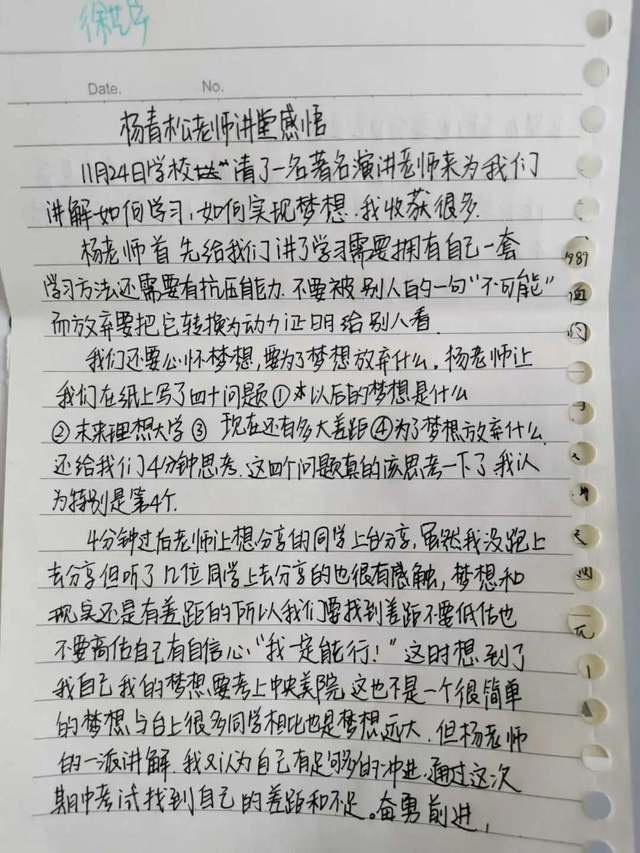 Date. No.
杨青松老师讲堂感悟
11月24日学校 请了一名著名演讲老师来为我们
讲解如何学习,如何实现梦想.我收获很多.
杨老师首先给我们讲了学习需要拥有自己一套
学习方法还需要有抗压能力.不要被别人的一句“不可能”
而放弃要把它转换为动力证明给别人看.
我们还要心怀梦想,要为了梦想放弃什么.杨老师让
我们在纸上写了四个问题①本以后的梦想是什么
②未来理想大学③现在还有多大差距④为了梦想放弃什么.
还给我们4分钟思考.这四个问题真的该思考一下了我认
为特别是第4个.
4分钟过后老师让想分享的同学上台分享,虽然我没跑上
去分享但听了几位同学上去分享的也很有感触,梦想和
现实还是有差距的所以我们要找到差距不要低估也
不要高估自己有自信心“我一定能行!”这时想到了
我自己我的梦想要考上中央美院这也不是一个很简单
的梦想与台上很多同学相比也是梦想远大.但杨老师
的一派讲解.我又认为自己有足够多的冲进.通过这次
期中考试找到自己的差距和不足。奋勇前进,